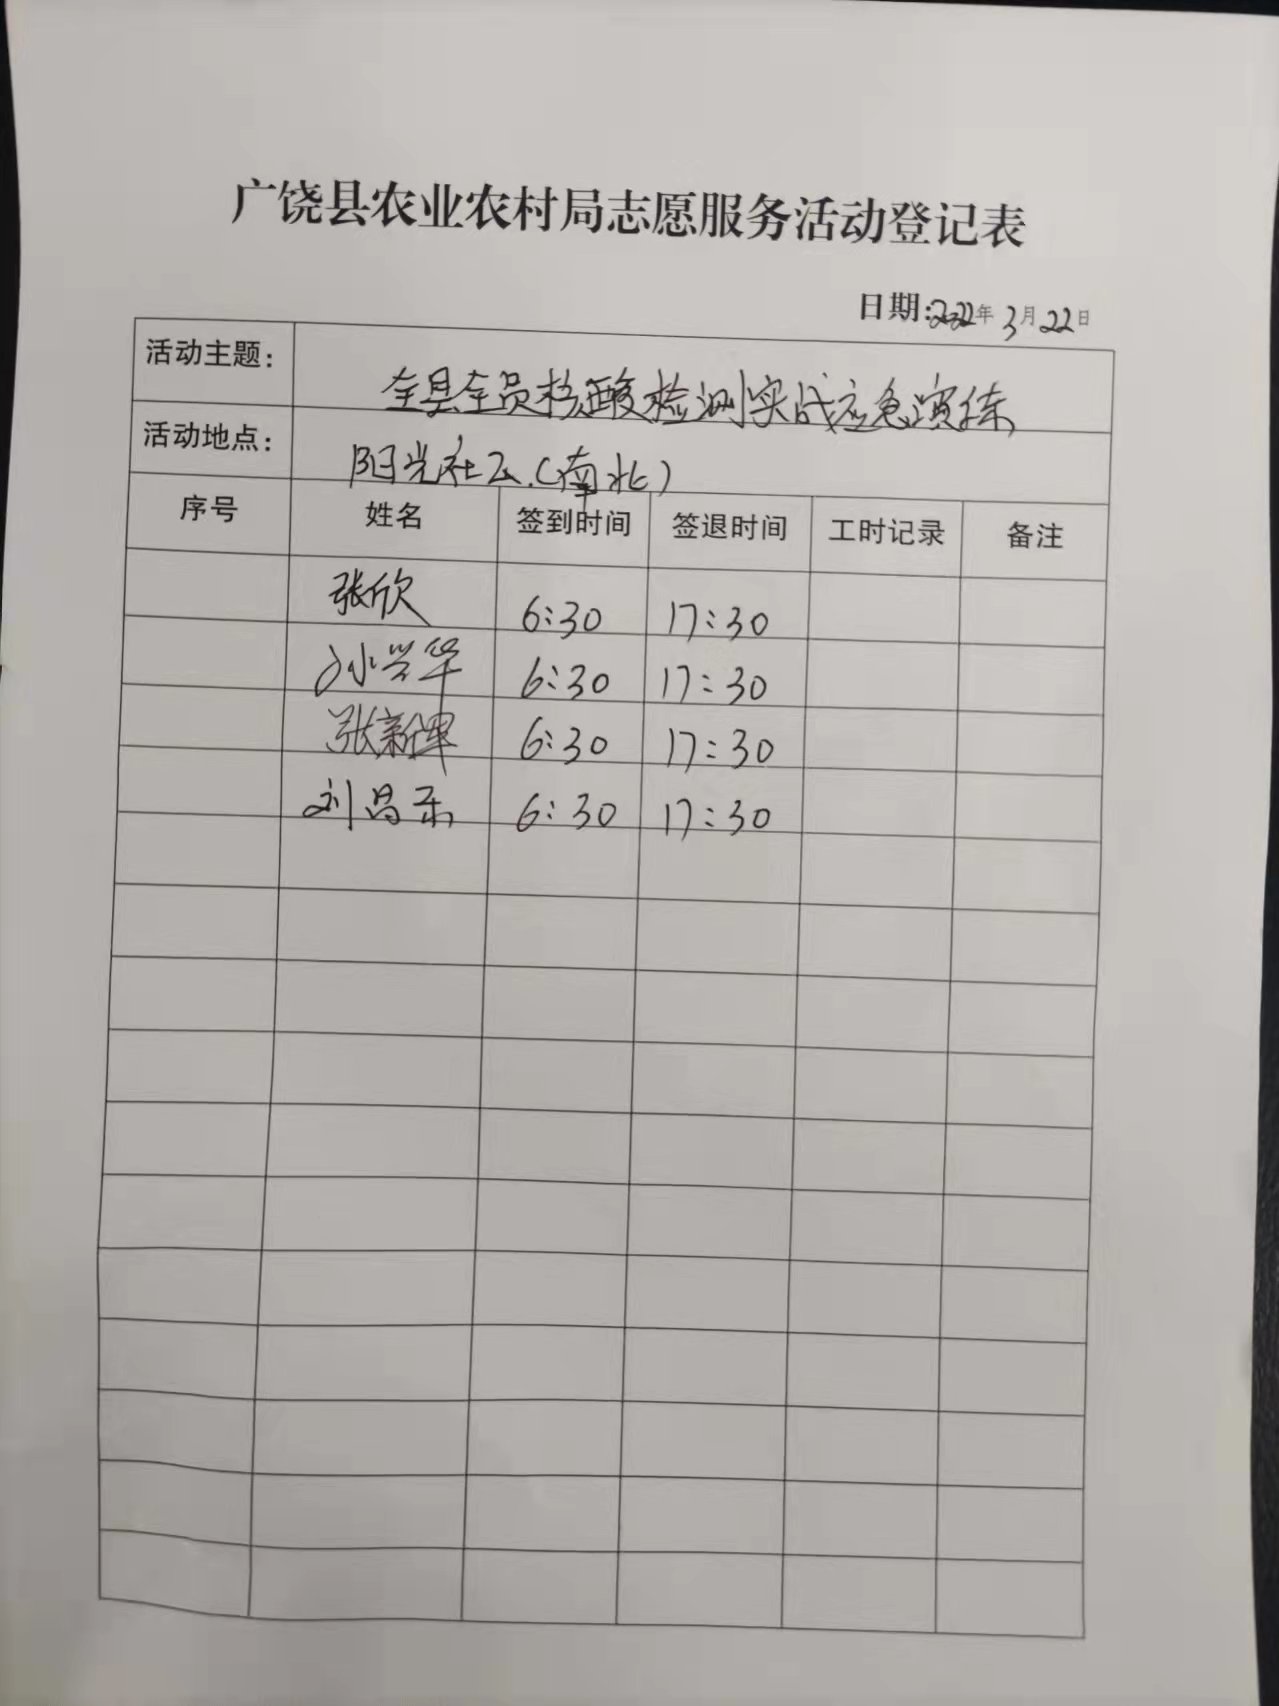 广饶县农业农村局志愿服务活动登记表
日期:2022年3月22日
活动主题: 全县全员核酸检测实战应急演练
活动地点: 阳光社区(南北)
序号 姓名 签到时间 签退时间 工时记录 备注
张欣 6:30 17:30
孙兴华 6:30 17:30
张新军 6:30 17:30
刘昌乐 6:30 17:30